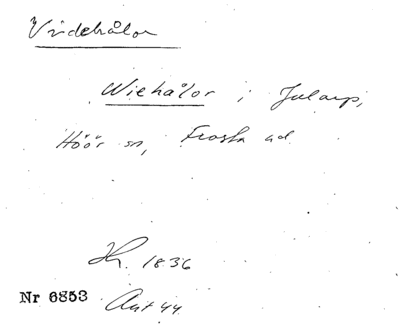 Videhålor
Wiehålor i Jularp,
Höör sn, Frosta hd
H. 1836
Nr 6853 Ant 44